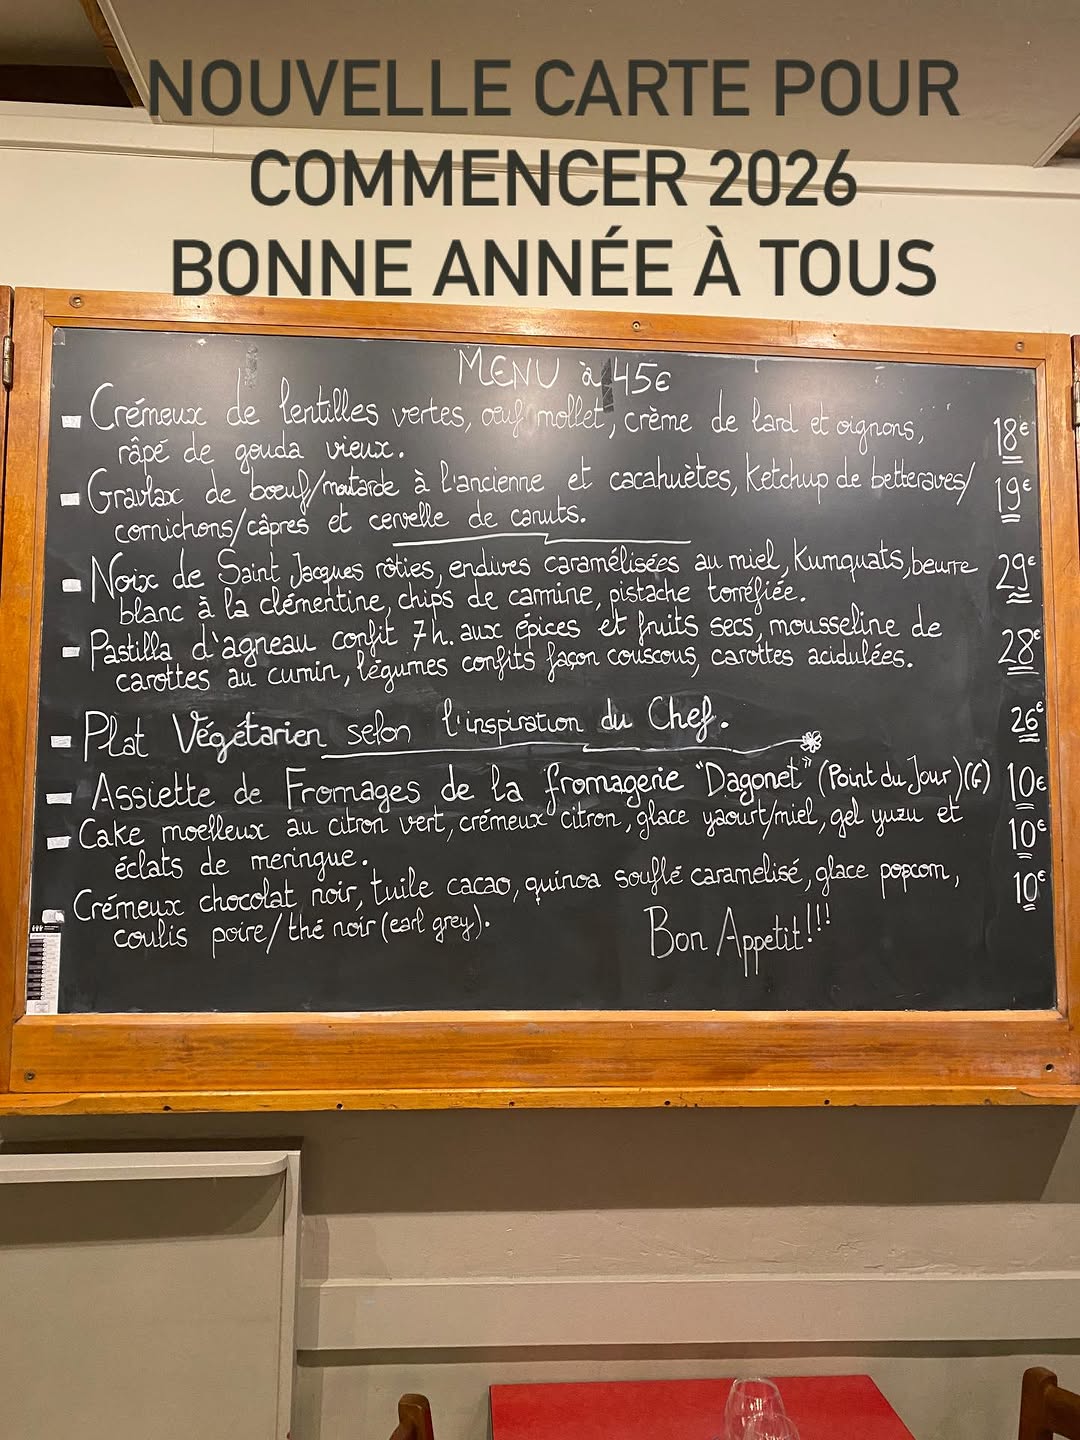 NOUVELLE CARTE POUR
COMMENCER 2026
BONNE ANNÉE À TOUS
MENU à 45€
Crémeux de lentilles vertes, œuf mollet, crème de lard et oignons, 18€
râpé de gouda vieux.
Gravlax de bœuf/moutarde à l'ancienne et cacahuètes, Ketchup de betteraves/ 19€
cornichons/câpres et cervelle de canuts.
Noix de Saint Jacques rôties, endives caramélisées au miel, Kumquats, beurre 29€
blanc à la clémentine, chips de carmine, pistache torréfiée.
Pastilla d'agneau confit 7h. aux épices et fruits secs, mousseline de 28€
carottes au cumin, légumes confits façon couscous, carottes acidulées.
Plat Végétarien selon l'inspiration du Chef. 26€
Assiette de Fromages de la fromagerie "Dagonet" (Point du Jour)(G) 10€
Cake moelleux au citron vert, crémeux citron, glace yaourt/miel, gel yuzu et 10€
éclats de meringue.
Crémeux chocolat noir, tuile cacao, quinoa soufflé caramelisé, glace popcorn, 10€
coulis poire/thé noir (earl grey).
Bon Appetit!!!